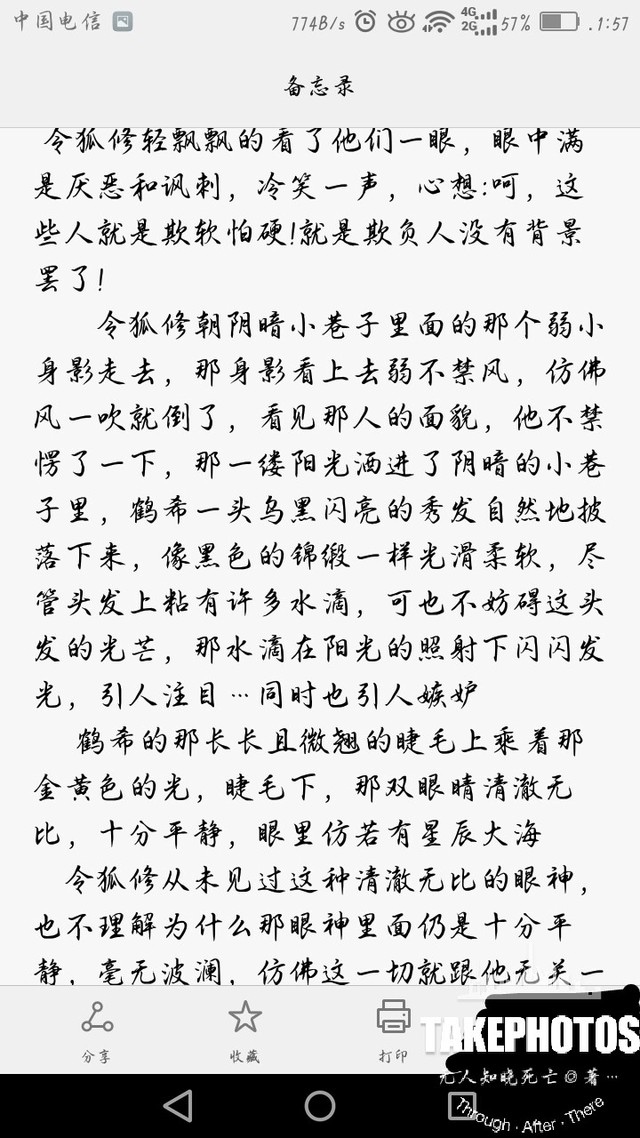 中国电信 774B/s 4G 2G 57% 1:57
备忘录
令狐修轻飘飘的看了他们一眼，眼中满
是厌恶和讽刺，冷笑一声，心想:呵，这
些人就是欺软怕硬!就是欺负人没有背景
罢了!
令狐修朝阴暗小巷子里面的那个弱小
身影走去，那身影看上去弱不禁风，仿佛
风一吹就倒了，看见那人的面貌，他不禁
愣了一下，那一缕阳光洒进了阴暗的小巷
子里，鹤希一头乌黑闪亮的秀发自然地披
落下来，像黑色的锦缎一样光滑柔软，尽
管头发上粘有许多水滴，可也不妨碍这头
发的光芒，那水滴在阳光的照射下闪闪发
光，引人注目…同时也引人嫉妒
鹤希的那长长且微翘的睫毛上乘着那
金黄色的光，睫毛下，那双眼睛清澈无
比，十分平静，眼里仿若有星辰大海
令狐修从未见过这种清澈无比的眼神，
也不理解为什么那眼神里面仍是十分平
静，毫无波澜，仿佛这一切就跟他无关一
分享 收藏 打印
TAKEPHOTOS
无人知晓死亡◎著…
Through·After·There